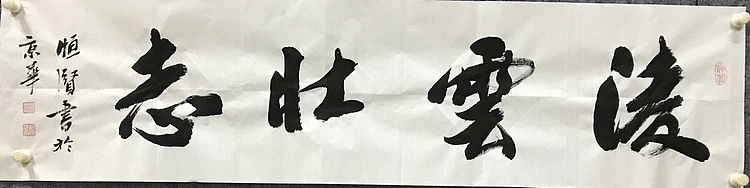 凌雲壮志
恒賢書於
京華